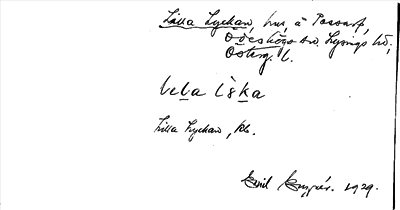 Lilla Lyckan, hus, å Passorp,
Ödeshögs sn. Lysings hd,
Österg. l.
lela lska
Lilla Lyckan, hb.
Emil 1929.